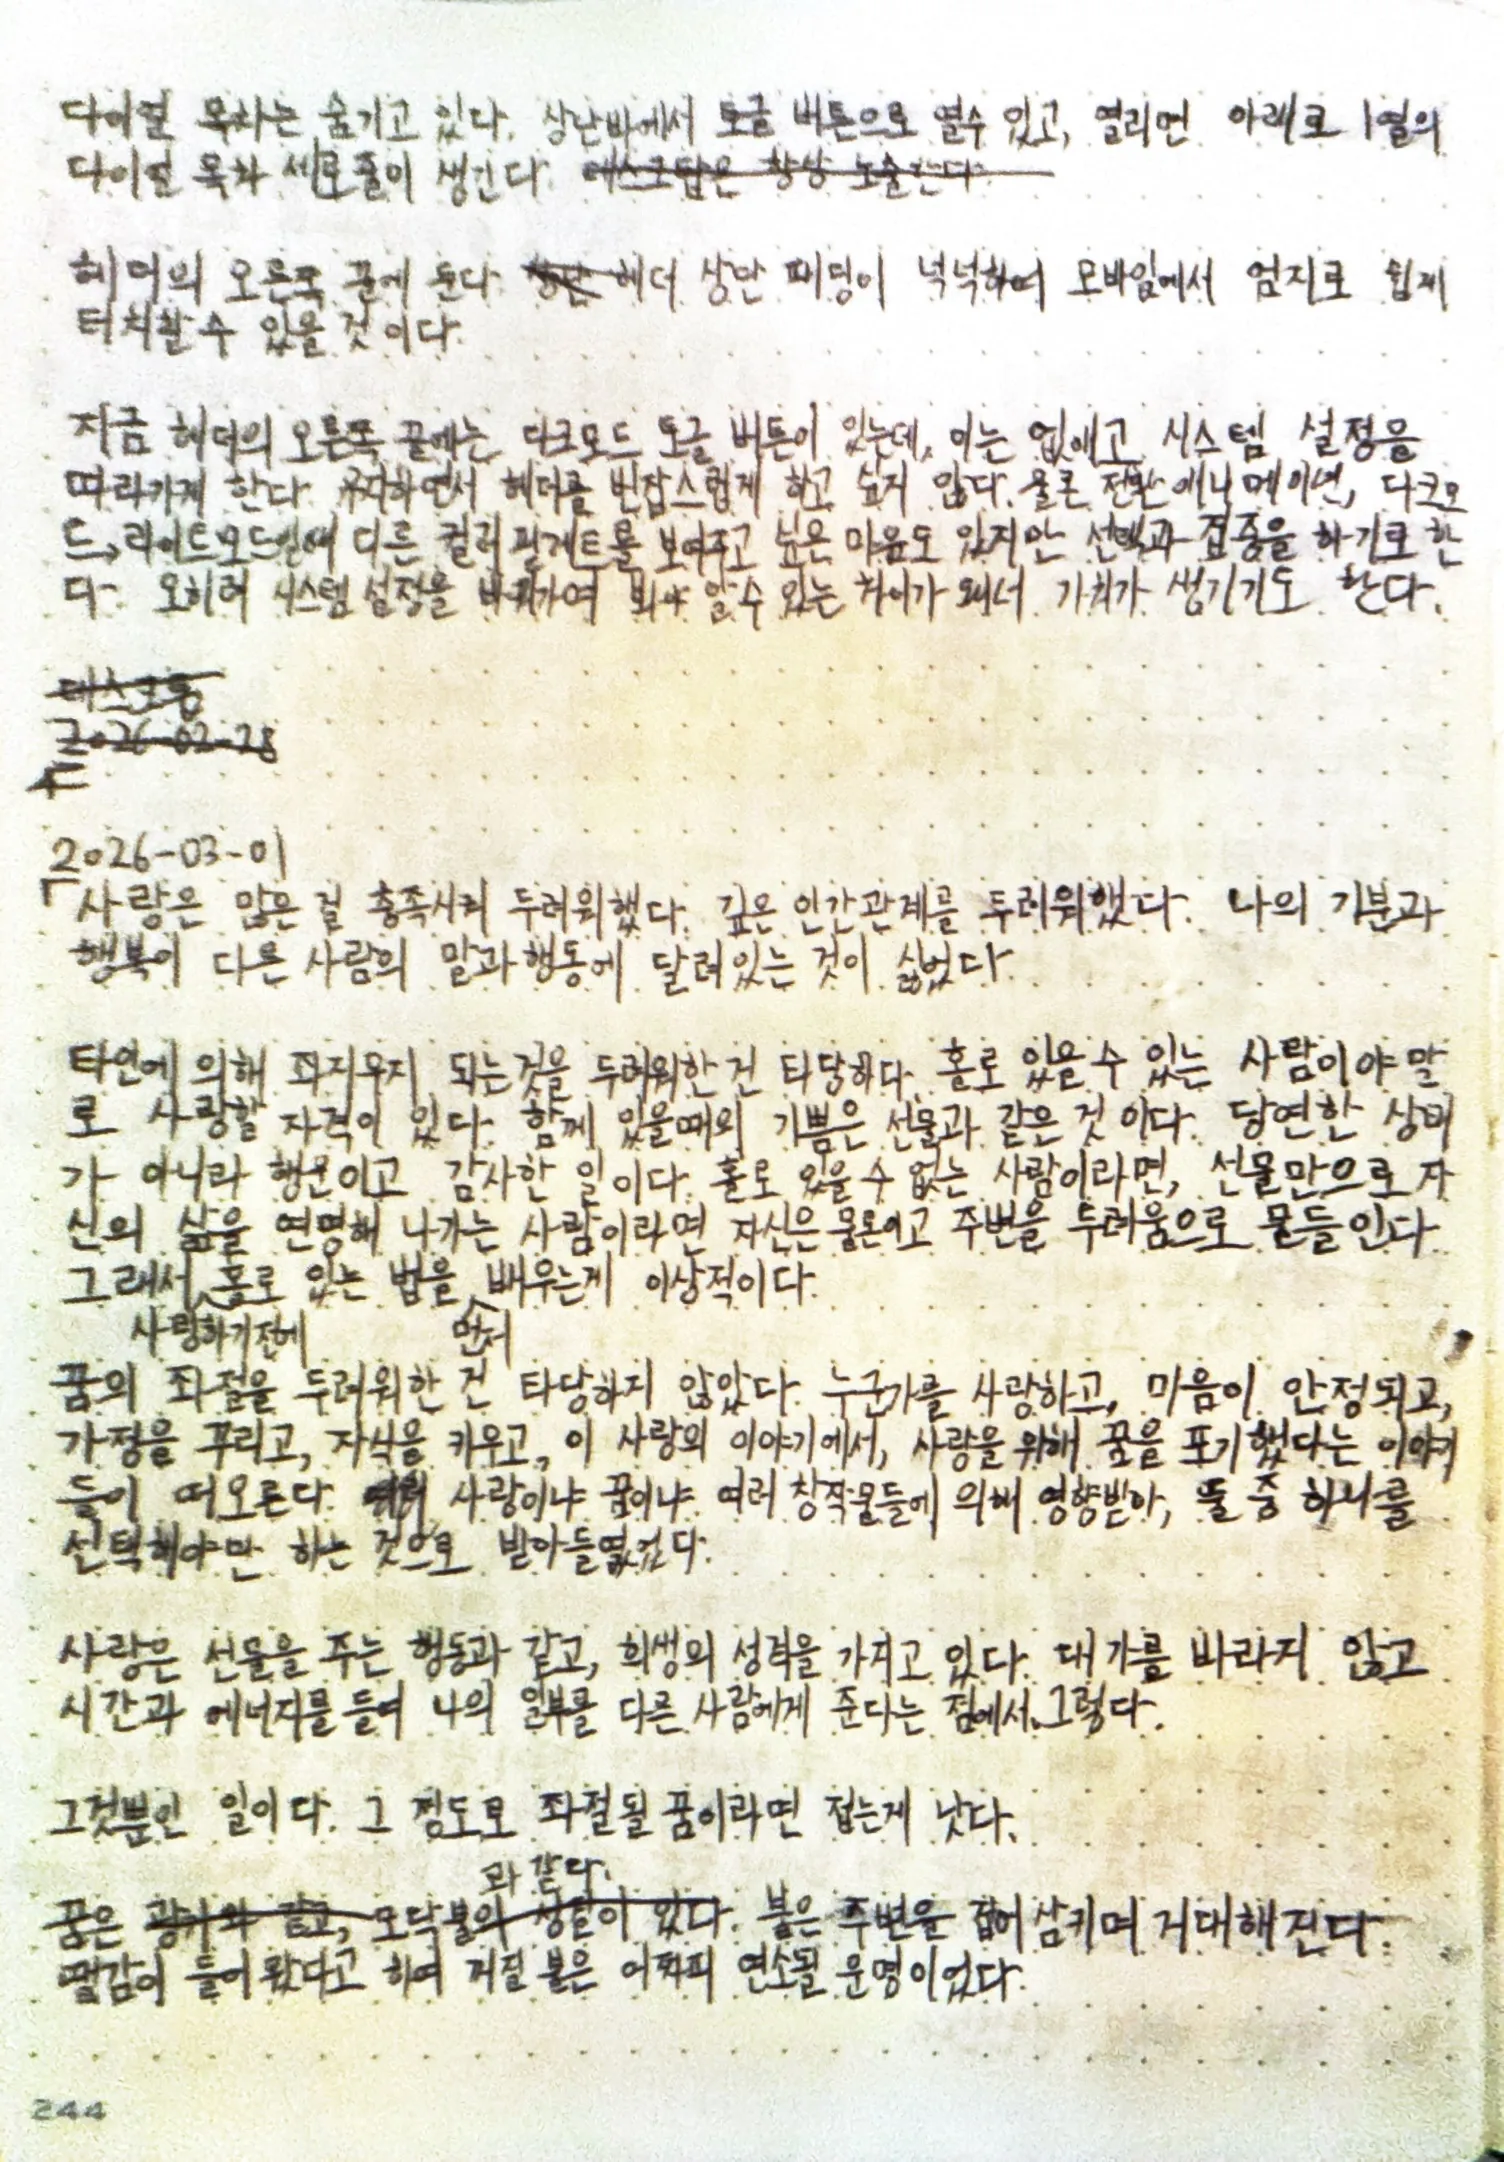 다이얼 목차는 숨기고 있다. 상단바에서 토글 버튼으로 열수 있고, 열리면 아래로 1열의
다이얼 목차 세로줄이 생긴다. 데스크탑은 항상 노출한다.
헤더의 오른쪽 끝에 둔다. 헤더 상단 패딩이 넉넉하여 모바일에서 엄지로 쉽게
터치할 수 있을 것이다.
지금 헤더의 오른쪽 끝에는, 다크모드 토글 버튼이 있는데, 이는 없애고 시스템 설정을
따라가게 한다. 하면서 헤더를 번잡스럽게 하고 싶지 않다. 물론 전환 애니메이션, 다크모
드, 라이트모드일때 다른 컬러 팔레트를 보여주고 싶은 마음도 있지만 선택과 집중을 하기로 한
다. 오히려 시스템 설정을 바꿔가며 봐야 알 수 있는 차이가 돼서 가치가 생기기도 한다.
데스크톱
2026-02-28
2026-03-01
사랑은 많은 걸 충족시켜 두려워했다. 깊은 인간관계를 두려워했다. 나의 기분과
행복이 다른 사람의 말과 행동에 달려있는 것이 싫었다.
타인에 의해 좌지우지 되는 것을 두려워한 건 타당하다. 홀로 있을 수 있는 사람이야 말
로 사랑할 자격이 있다. 함께 있을때의 기쁨은 선물과 같은 것이다. 당연한 상태
가 아니라 행운이고 감사한 일이다. 홀로 있을 수 없는 사람이라면, 선물만으로 자
신의 삶을 연명해 나가는 사람이라면 자신은 물론이고 주변을 두려움으로 물들인다.
그래서 홀로 있는 법을 배우는게 이상적이다.
사랑하기전에 먼저
꿈의 좌절을 두려워한 건 타당하지 않았다. 누군가를 사랑하고, 마음이 안정되고,
가정을 꾸리고, 자식을 키우고, 이 사랑의 이야기에서, 사랑을 위해 꿈을 포기했다는 이야기
들이 떠오른다. 사랑이냐 꿈이냐. 여러 창작물들에 의해 영향받아, 둘 중 하나를
선택해야만 하는 것으로 받아들였었다.
사랑은 선물을 주는 행동과 같고, 희생의 성격을 가지고 있다. 대가를 바라지 않고
시간과 에너지를 들여 나의 일부를 다른 사람에게 준다는 점에서 그렇다.
그것뿐인 일이다. 그 정도로 좌절될 꿈이라면 접는게 낫다.
과 같다.
꿈은 모닥불의 성질이 있다. 불은 주변을 집어삼키며 거대해진다.
땔감이 들어왔다고 하여 꺼질 불은 어짜피 연소될 운명이었다.
244